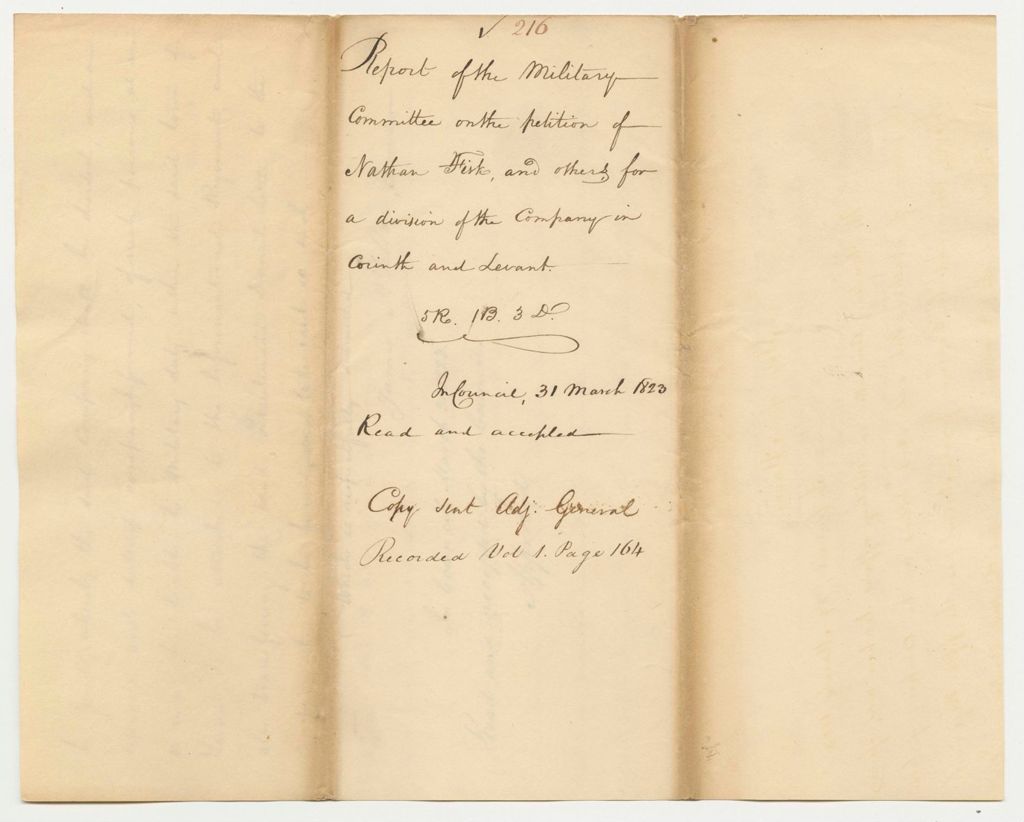 ✓ 216
Report of the Military
Committee on the petition of
Nathan Fisk, and others, for
a division of the Company in
Corinth and Levant.
5R. 1B. 3D.
In Council, 31 March 1823
Read and accepted
Copy sent Adj. General
Recorded Vol 1. Page 164